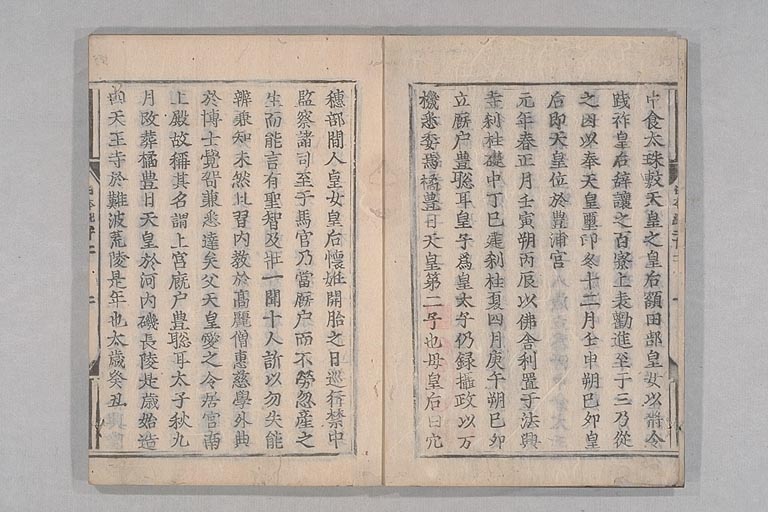 中食太珠敷天皇之皇后額田部皇女以將令
踐祚皇后辭讓之百寮上表勸進至于三乃從
之因以奉天皇璽印冬十二月壬申朔己卯皇
后即天皇位於豊浦宮
元年春正月壬寅朔丙辰以佛舎利置于法興
寺刹柱礎中丁巳建刹柱夏四月庚午朔己卯
立厩户豊聡耳皇子爲皇太子仍録攝政以万
機悉委焉橘豊日天皇第二子也母皇后曰穴
穂部間人皇女皇后懷姙開胎之日巡行禁中
監察諸司至于馬官乃當厩户而不勞忽産之
生而能言有聖智及壯一聞十人訴以勿失能
辨兼知未然且習内教於高麗僧惠慈學外典
於博士覺哿兼悉達矣父天皇愛之令居宮南
上殿故稱其名謂上宮厩户豊聡耳太子秋九
月改葬橘豊日天皇於河内磯長陵是歳始造
四天王寺於難波荒陵是年也太歳癸丑